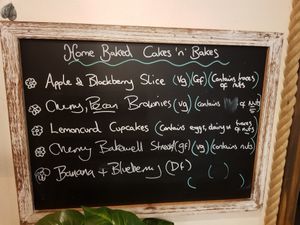 Home Baked Cakes 'n' Bakes
Apple & Blackberry Slice (Vg) (Gf) (Contains traces of nuts)
Cherry, Pecan Brownies (Vg) (contains of nuts)
Lemoncurd Cupcakes (Contains eggs, dairy of nuts)
Cherry Bakewell (gf) (vg) (contains nuts)
Banana + Blueberry (Df)